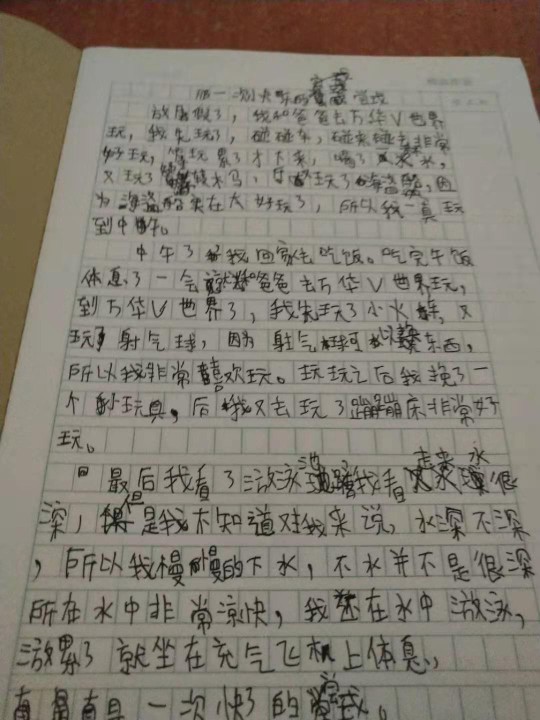 一次快乐的
放暑假了，我和爸爸去万华V世界
玩，我先玩了，碰碰车，碰碰车非常
好玩，玩累了才下来，喝了水，
又玩了转木马，玩了海盗船，因
为海盗船实在太好玩了，所以我一直玩
到中午。
中午了我回家去吃饭。吃完午饭
体息了一会就和爸爸去万华V世界玩，
到万华V世界了，我先玩了小火，又
玩了射气球，因为射气球可以东西，
所以我非常喜欢玩。玩玩之后我了一
个小玩具，后我又去玩了蹦蹦床非常好
玩。
最后我看了游泳池，我看起来水很
深，但是我不知道对我来说，水深不深
，所以我慢慢的下水，不水并不是很深
所在水中非常凉快，我还在水中游泳，
游累了就坐在充气飞机上体息，
真是一次快了的